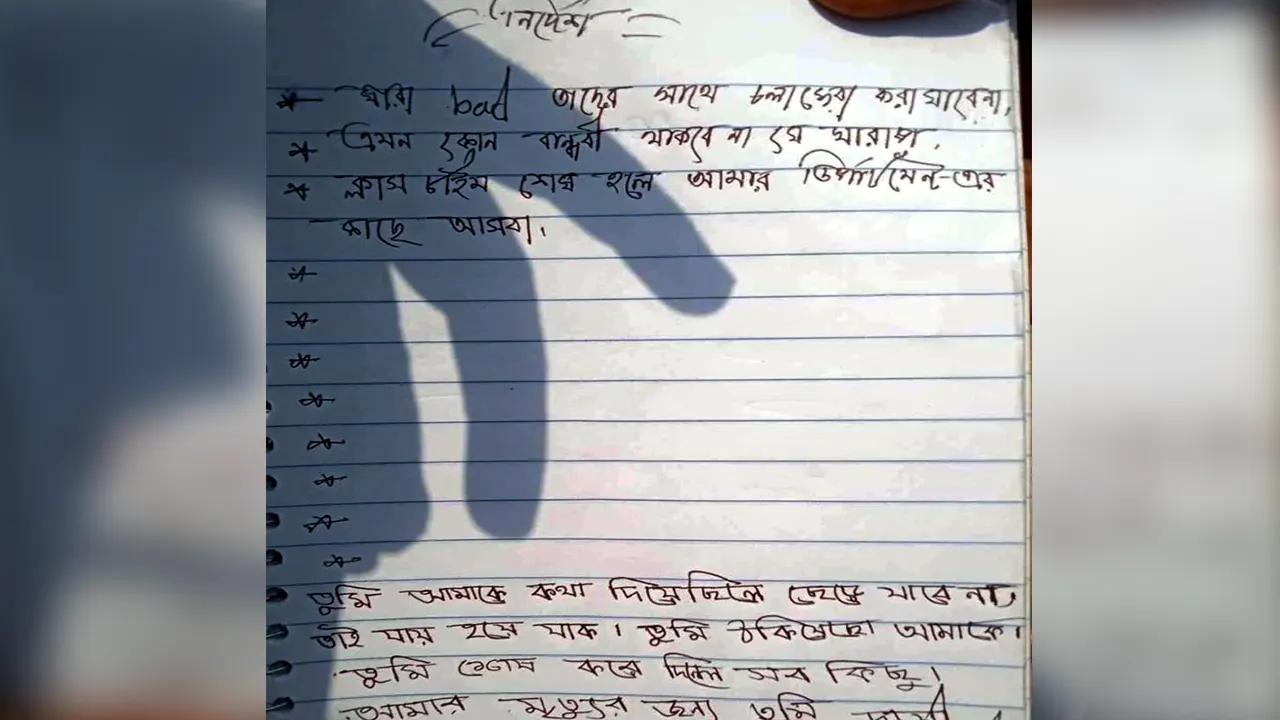 নির্দেশ
* যারা bad তাদের সাথে চলাফেরা করা যাবেনা,
* এমন কোন বান্ধবী থাকবে না যে খারাপ.
* ক্লাস টাইম শেষ হলে আমার ডিপার্টমেন্ট-এর
কাছে আসবা।
*
*
*
*
*
*
*
*
তুমি আমাকে কথা দিয়েছিলে ছেড়ে যাবে না,
তাই যায় হয়ে যাক। তুমি ঠকিয়েছো আমাকে।
তুমি শেষ করে দিলে সব কিছু।
আমার মৃত্যুর জন্য তুমি